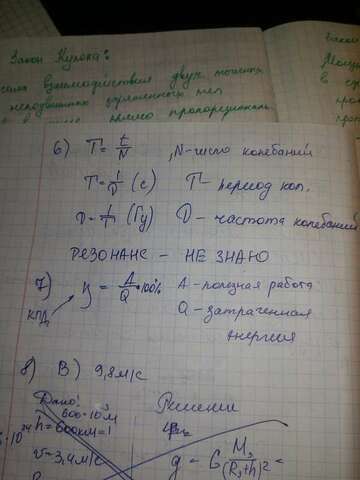 Закон Кулона:
сила взаимодействия двух точечн
неподвижных заряженных тел
прямо пропорциональ
6) T = t/N , N – число колебаний
T = 1/ν (с) T – период кол.
ν = 1/T (Гц) ν – частота колебаний
РЕЗОНАНС – НЕ ЗНАЮ
7) η = A/Q · 100% A – полезная работа
КПД Q – затраченная
энергия
8) В) 9,8 м/с
Дано: Решение
600·10³м
h = 600км =
v = 3,4 м/с g = G M₃/(R₃+h)² =